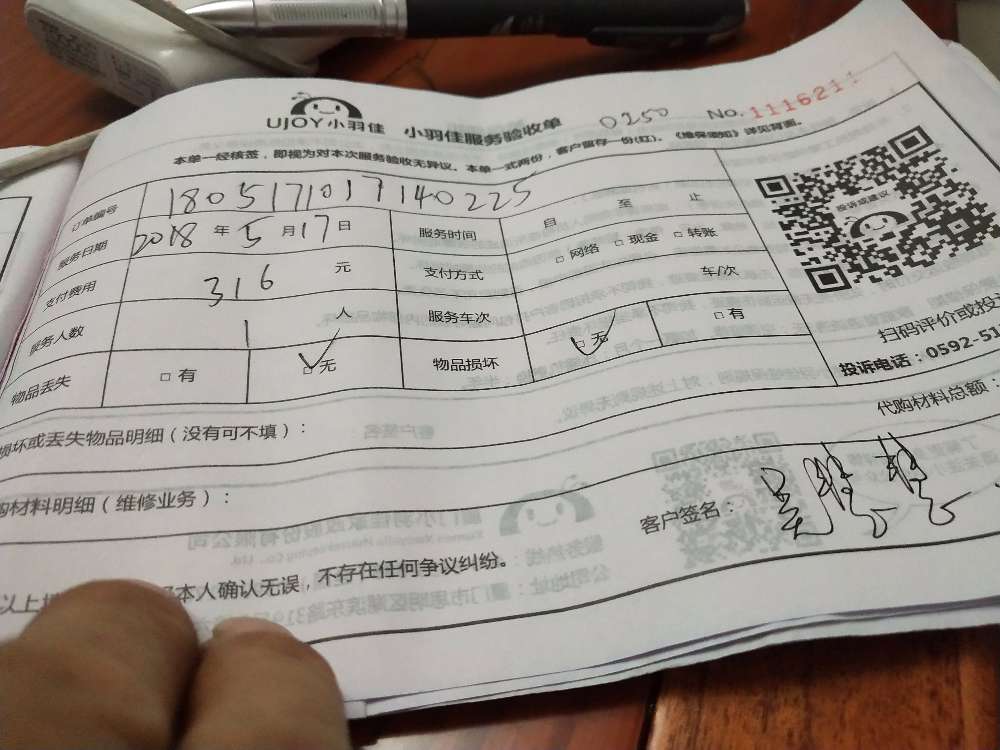 UJOY小羽佳 小羽佳服务验收单 0250 No.111621
本单一经核签，即视为对本次服务验收无异议。本单一式两份，客户留存一份(红)。《维保须知》详见背面。
订单编号 1805171017140225
服务日期 2018 年 5 月 17 日 服务时间 自 至 止
支付费用 316 元 支付方式 □ 网络 □ 现金 □ 转账
服务人数 1 人 服务车次 车/次
物品丢失 □ 有 □ 无 物品损坏 □ 无 □ 有
投诉或建议
扫码评价或投
投诉电话：0592-51
损坏或丢失物品明细（没有可不填）： 代购材料总额：
购材料明细（维修业务）：
客户签名：
以上 本人确认无误，不存在任何争议纠纷。